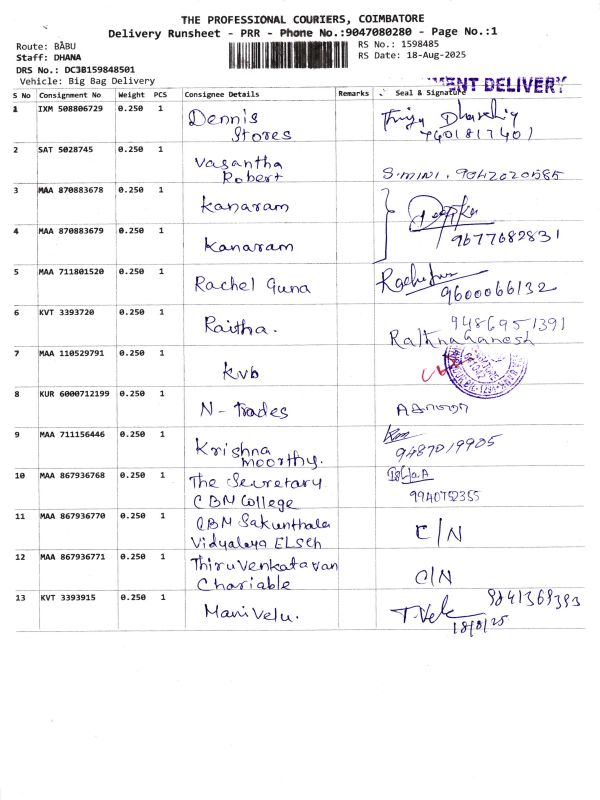 THE PROFESSIONAL COURIERS, COIMBATORE
Delivery Runsheet - PRR - Phone No.:9047080280 - Page No.:1
Route: BABU
RS No.: 1598485
Staff: DHANA
RS Date: 18-Aug-2025
DRS No.: DC30159848501
Vehicle: Big Bag Delivery
MENT DELIVERY
S No Consignment No Weight PCS Consignee Details Remarks Seal & Signature
1 IXM 508806729 0.250 1 Dennis Stores 7401817401
2 SAT 5028745 0.250 1 Vasantha Robert S.MINI. 9042020585
3 MAA 870883678 0.250 1 Kanaram
4 MAA 870883679 0.250 1 Kanaram 9677682831
5 MAA 711801520 0.250 1 Rachel Guna 9600066132
6 KVT 3393720 0.250 1 Raitha. 9486951391
7 MAA 110529791 0.250 1 Kvb
8 KUR 6000712199 0.250 1 N- Trades
9 MAA 711156446 0.250 1 Krishna moorthy. 9487019905
10 MAA 867936768 0.250 1 The Secretary CBM College 9940752355
11 MAA 867936770 0.250 1 CBM Sakunthala Vidyalaya C/N
12 MAA 867936771 0.250 1 Thiruvenkatavan Chariable C/N
13 KVT 3393915 0.250 1 Manivelu. 9841369393
18/8/25